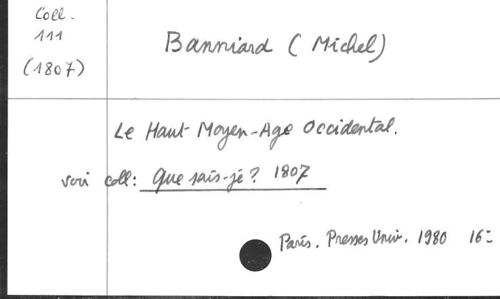 Coll.
111
(1807)
Banniard (Michel)
Le Haut Moyen-Age Occidental.
voir coll: Que sais-je? 1807
Paris. Presses Univ. 1980 16º